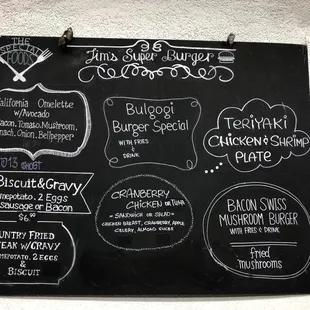 THE
SPECIAL
FOODS
Jim's Super Burger
California Omelette
w/Avocado
Bacon, Tomato, Mushroom,
Spinach, Onion, Bellpepper
Biscuit & Gravy
Homepotato, 2 Eggs
Sausage or Bacon
$6.
Country Fried
Steak w/Gravy
Homepotato, 2 Eggs
& Biscuit
Bulgogi
Burger Special
with Fries
&
Drink
Cranberry
Chicken or Tuna
- Sandwich or Salad -
Chicken Breast, Cranberry, Apple
Celery, Almond
Teriyaki
Chicken & Shrimp
Plate
Bacon Swiss
Mushroom Burger
with Fries & Drink
fried
mushrooms